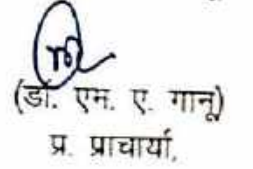 (डॉ. एम. ए. गानू)
प्र. प्राचार्या,